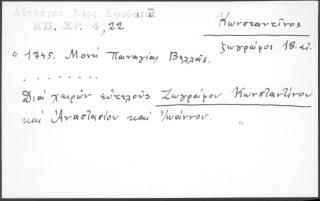 Αθέναγος Νέος Κουβαρᾶ
ΗΠ. ΧΡ. 4, 22
Κωνσταντῖνος
ζωγράφος 18. αἰ.
" 1745. Μονή Παναγίας Βελλᾶς.
. . . . . . . .
Διά χειρῶν εὐτελοῦς Ζωγράφου Κωνσταντίνου
καί Ἀναστασίου καί Ἰωάννου. "